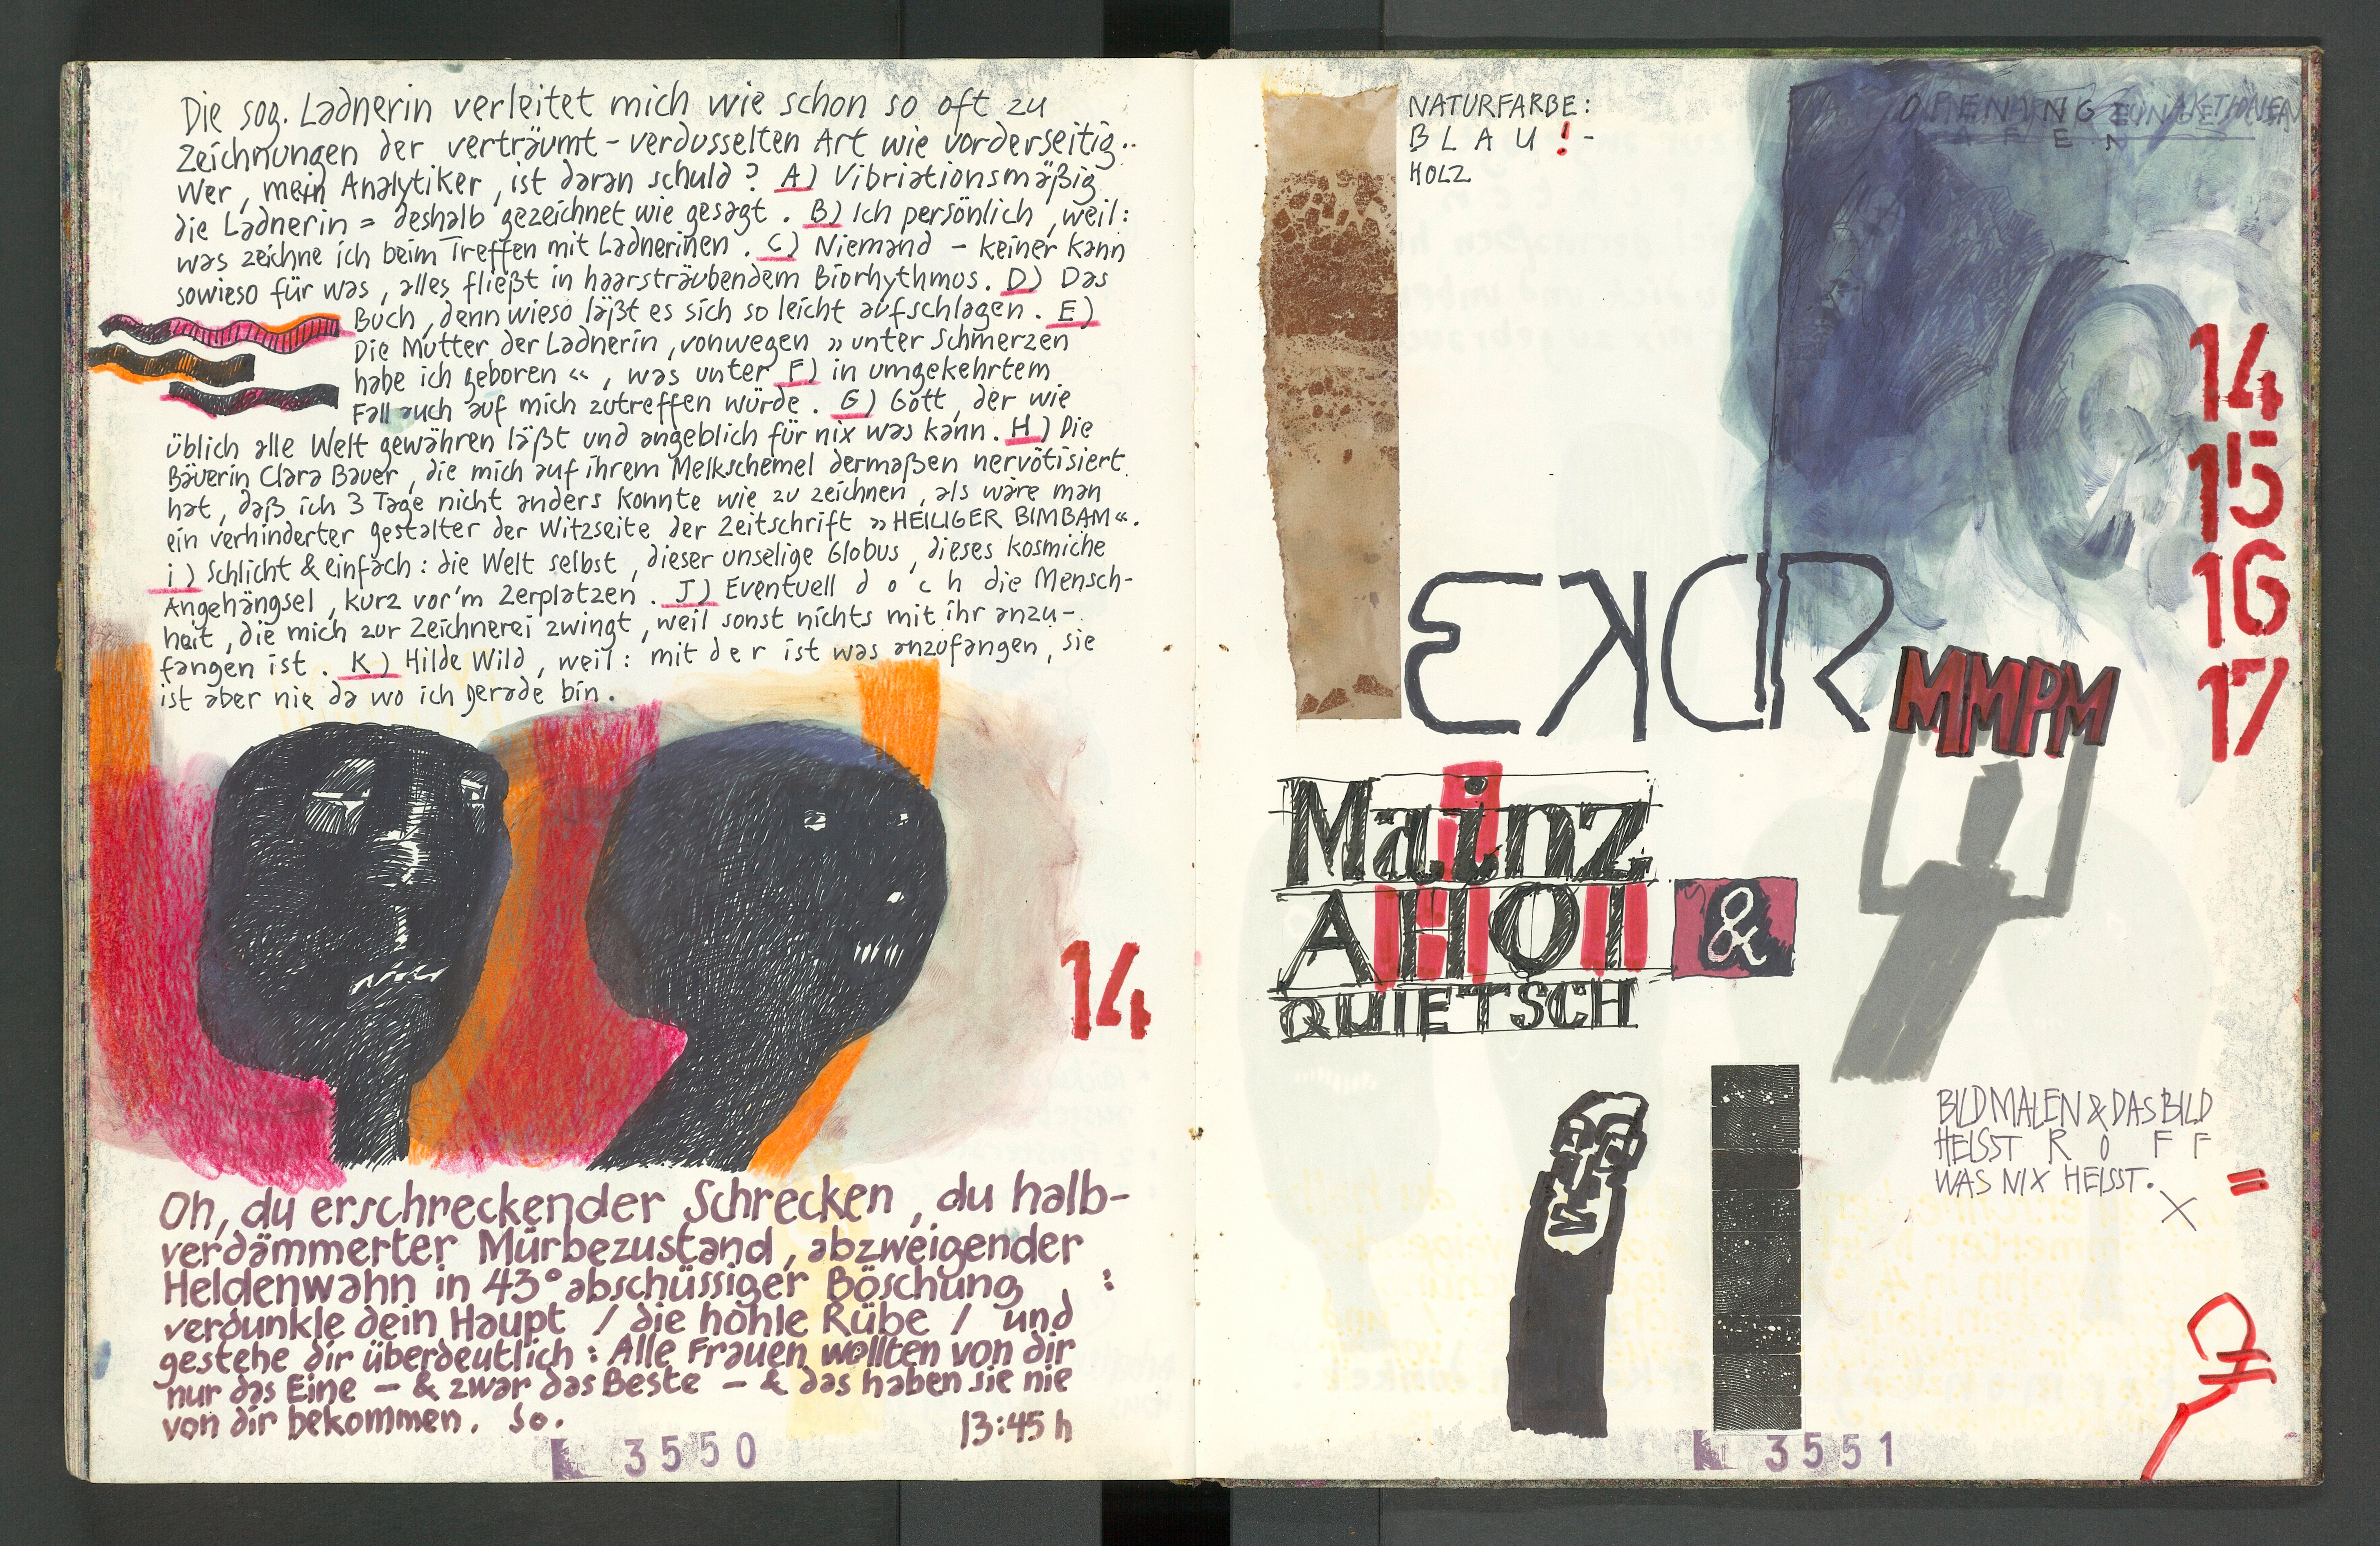 Die sog. Ladnerin verleitet mich wie schon so oft zu
Zeichnungen der verträumt-verdusselten Art wie vorderseitig..
Wer, mein Analytiker, ist daran schuld? A) Vibriationsmäßig
die Ladnerin = deshalb gezeichnet wie gesagt. B) Ich persönlich, weil:
was zeichne ich beim Treffen mit Ladnerinen. C) Niemand - keiner kann
sowieso für was, alles fließt in haarsträubendem Biorhythmus. D) Das
Buch, denn wieso läßt es sich so leicht aufschlagen. E)
Die Mutter der Ladnerin, vonwegen »unter Schmerzen
habe ich geboren«, was unter F) in umgekehrtem
Fall auch auf mich zutreffen würde. G) Gott, der wie
üblich alle Welt gewähren läßt und angeblich für nix was kann. H) Die
Bäuerin Clara Bauer, die mich auf ihrem Melkschemel dermaßen nervötisiert
hat, daß ich 3 Tage nicht anders konnte wie zu zeichnen, als wäre man
ein verhinderter gestalter der Witzseite der Zeitschrift »HEILIGER BIMBAM«.
i) Schlicht & einfach: die Welt selbst, dieser unselige Globus, dieses kosmiche
Angehängsel, kurz vor'm Zerplatzen. J) Eventuell d o c h die Mensch-
heit, die mich zur Zeichnerei zwingt, weil sonst nichts mit ihr anzu-
fangen ist. K) Hilde Wild, weil: mit der ist was anzufangen, sie
ist aber nie da wo ich gerade bin.
14
Oh, du erschreckender Schrecken, du halb-
verdämmerter Mürbezustand, abzweigender
Heldenwahn in 43° abschüssiger Böschung :
verdunkle dein Haupt / die hohle Rübe / und
gestehe dir überdeutlich: Alle Frauen wollten von dir
nur das Eine - & zwar das Beste - & das haben sie nie
von dir bekommen. So.
13:45 h
3550
NATURFARBE:
B L A U ! -
HOLZ
14
15
16
17
MMPM
Mainz
AHOI &
QUIETSCH
BILD MALEN & DAS BILD
HEISST R O F F
WAS NIX HEISST.
3551